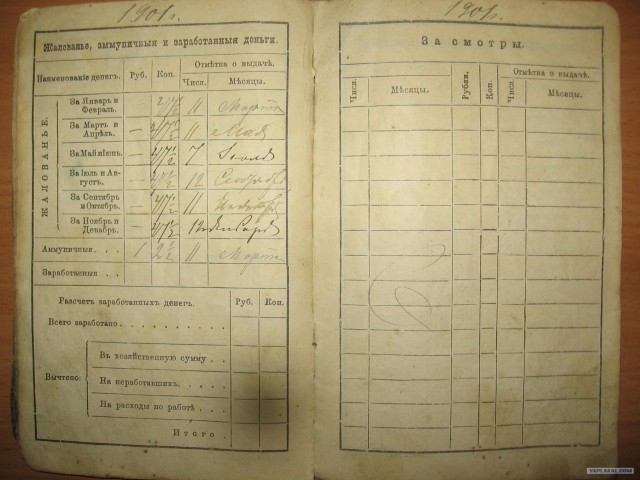 1901 г.
Жалованье, аммуничныя и заработанныя деньги.
Наименованіе денегъ. Руб. Коп. Отмѣтка о выдачѣ.
Числ. Мѣсяцы.
ЖАЛОВАНЬЕ.
За Январь и Февраль. 11 Марта
За Мартъ и Апрѣль. — 11 Мая
За Май и Іюнь. — 7 Іюля
За Іюль и Августъ. — 12 Сентября
За Сентябрь и Октябрь. — 11 Ноября
За Ноябрь и Декабрь. — 12 Января
Аммуничныя . . . 1 11 Марта
Заработанныя . .
Разсчетъ заработанныхъ денегъ. Руб. Коп.
Всего заработано . . . . . . . . . .
Вычтено:
Въ хозяйственную сумму . .
На неработавшихъ. . . . .
На расходы по работѣ . . .
Итого .
1901 г.
За смотры.
Числ. Мѣсяцы. Рубли. Коп. Отмѣтка о выдачѣ.
Числ. Мѣсяцы.